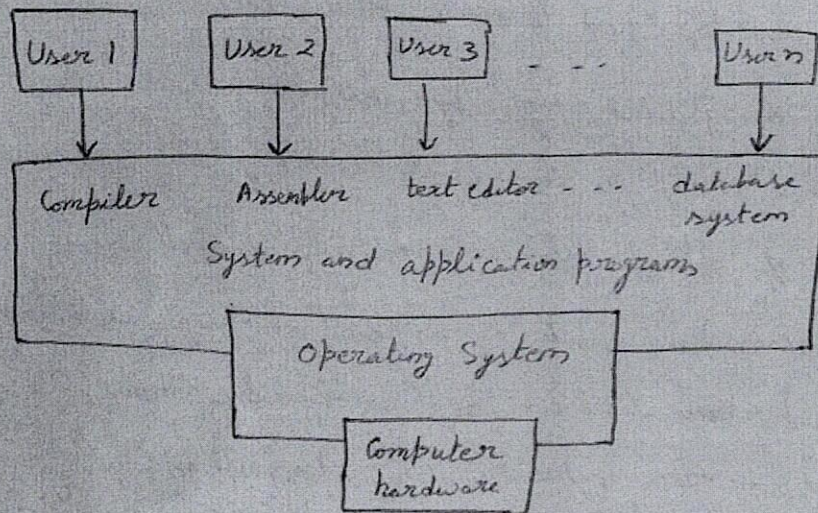 User 1 User 2 User 3 - - - User n
Compiler Assembler text editor - - - database
system
System and application programs
Operating System
Computer
hardware